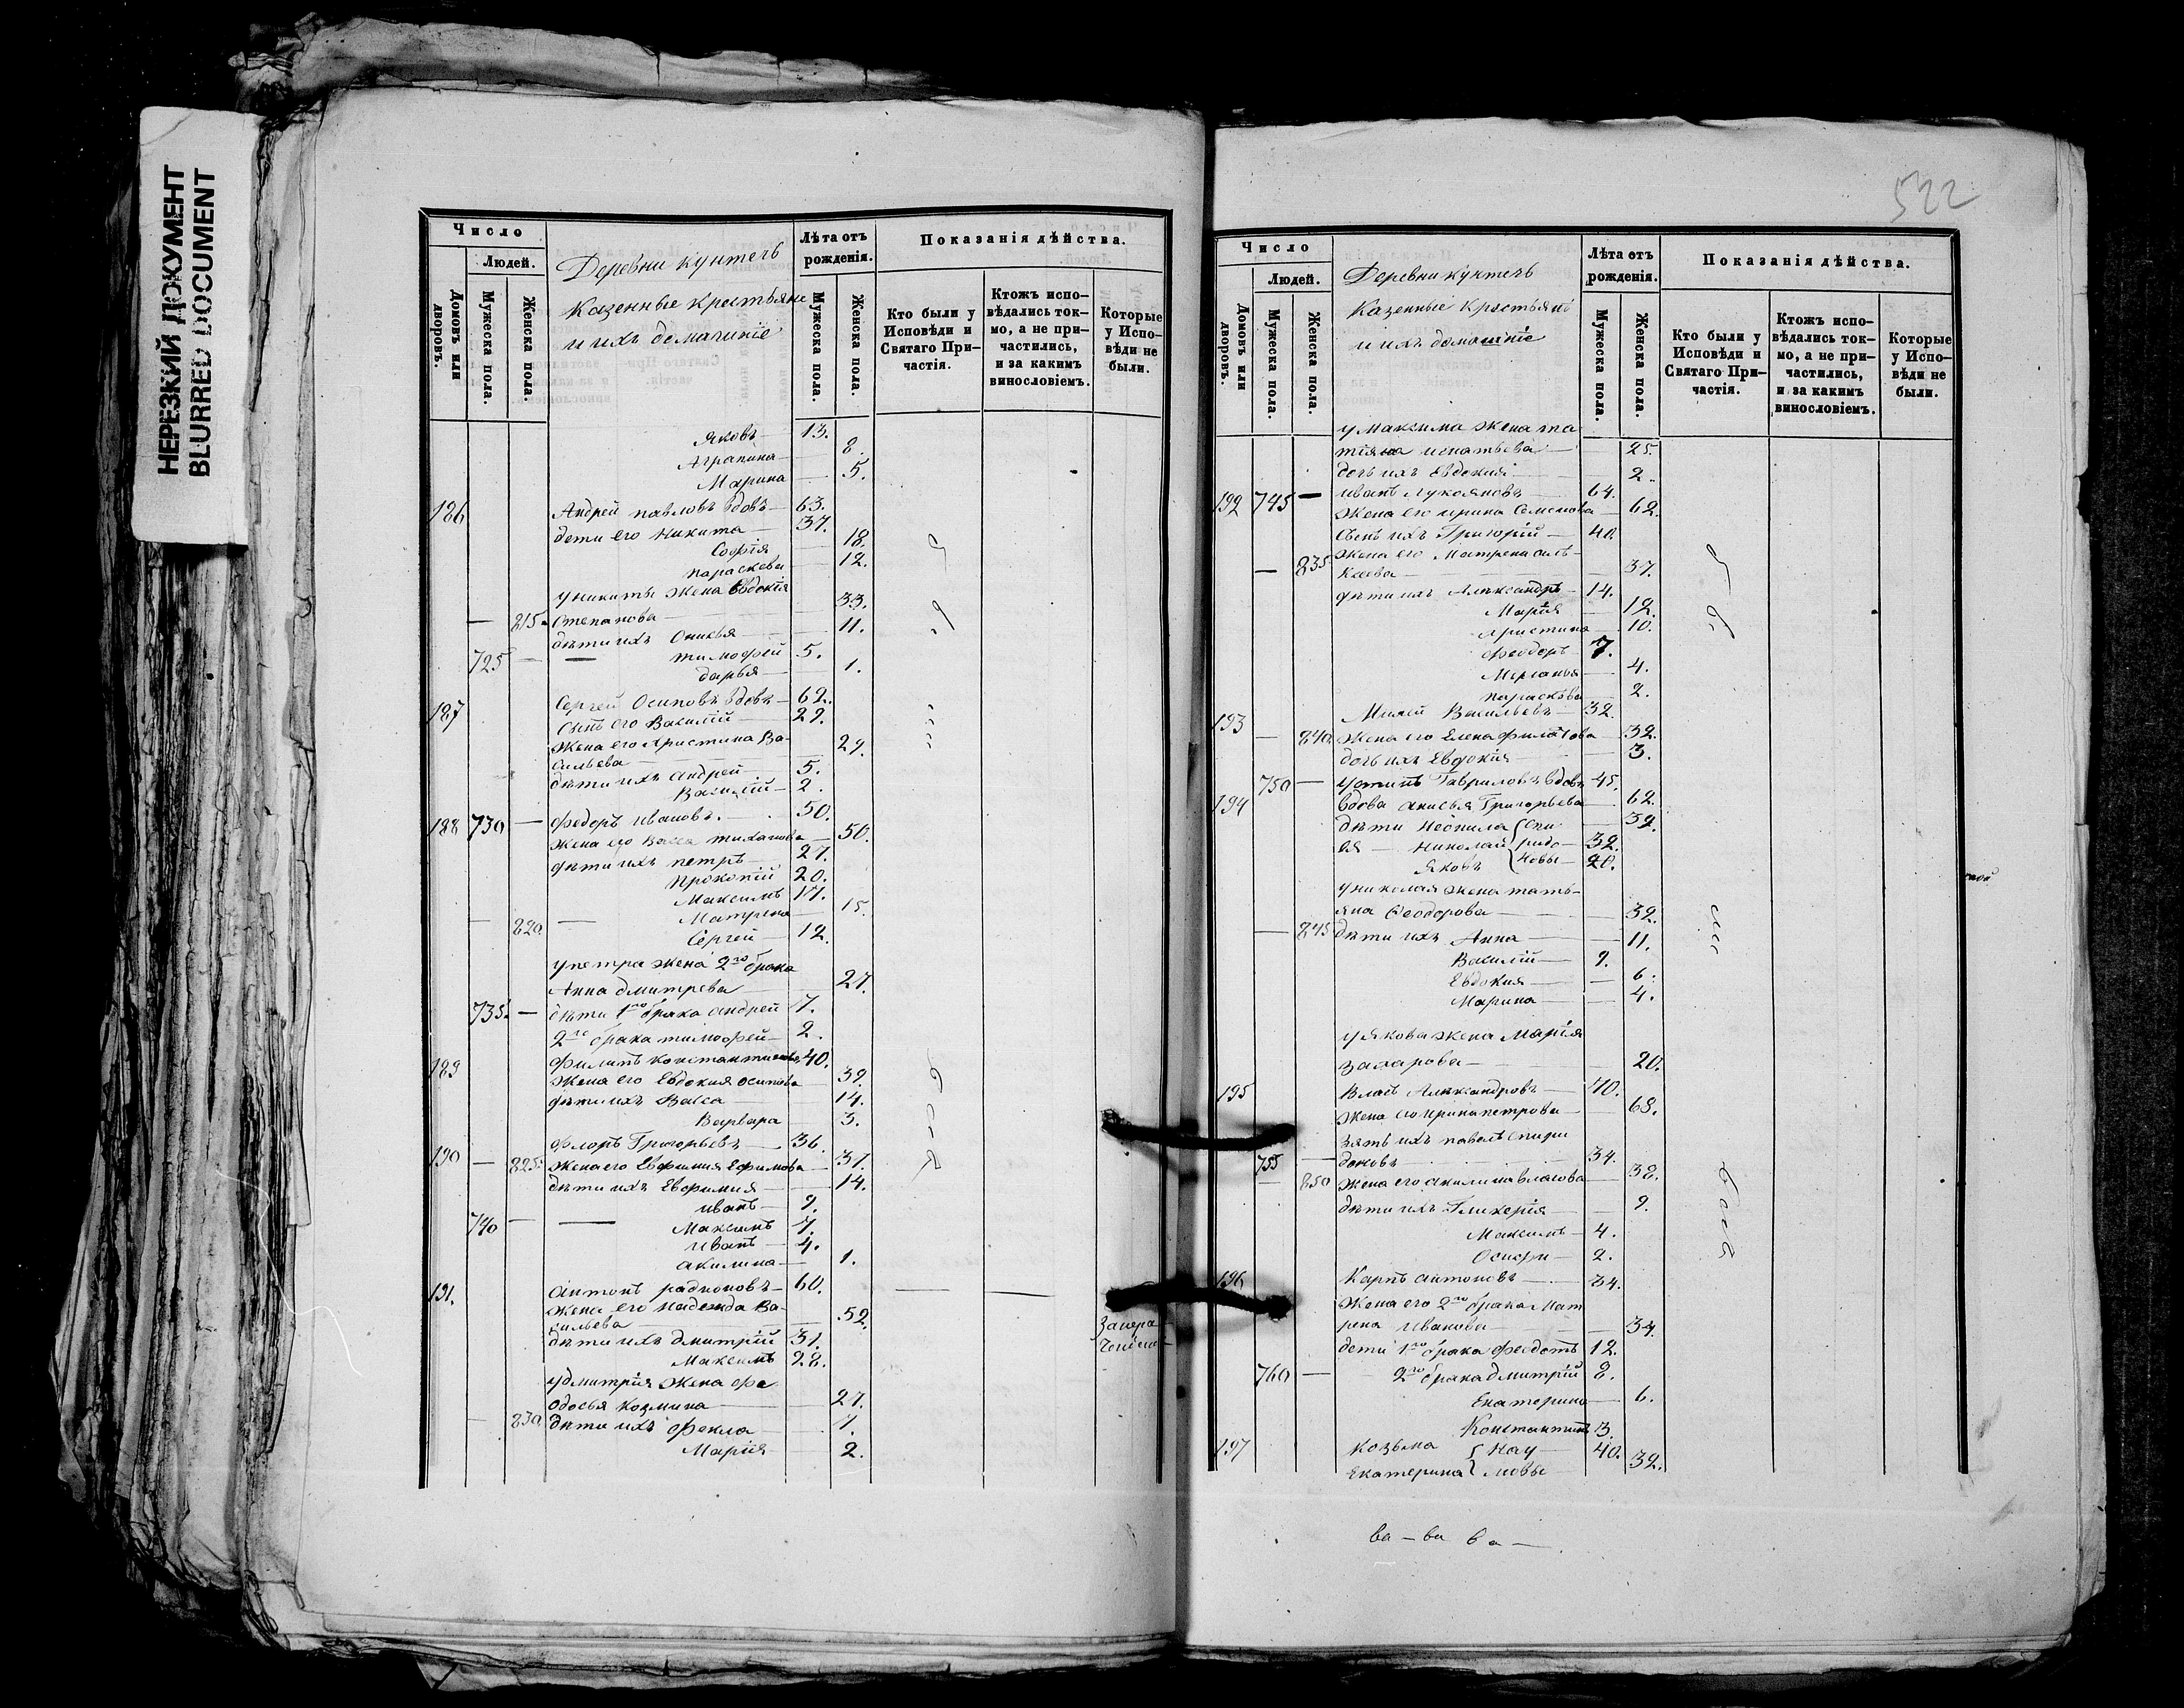 НЕРЕЗКИЙ ДОКУМЕНТ
BLURRED DOCUMENT
Число
Людей.
Домовъ или дворовъ.
Мужеска пола.
Женска пола.
Деревни Кунтечь
Казенные крестьяне
и ихъ домашніе
Лѣта отъ рожденія.
Мужеска пола.
Женска пола.
Показанія дѣйства.
Кто были у Исповѣди и Святаго Причастія.
Ктожъ исповѣдались токмо, а не причастились, и за какимъ винословіемъ.
Которые у Исповѣди не были.
Яковъ 13.
Агрипина 8.
Марина 5.
186 Андрей павловъ вдовъ 63.
дети его Никита 37.
Софія 18.
параскева 12.
у никиты жена Евдокія
— 815. Степанова 33.
дѣти ихъ Онисья 11.
725 — тимофей 5.
дарья 1.
187 Сергей Осиповъ вдовъ 62.
Сынъ его Василій 29.
жена его Христина Ва-
сильева 29.
дѣти ихъ андрей 5.
Василій 2.
188 730 — федоръ ивановъ. 50.
жена его Васса тиханова 50.
дѣти ихъ петръ 27.
прокопій 20.
Максимъ 17.
— 820. Матрена 15.
Сергей 12.
у петра жена 2го брака
Анна дмитрева 27.
735. — дѣти 1го брака андрей 7.
2го брака тимофей 2.
189 филипъ константиновъ 40.
жена его Евдокия осипова 39.
дѣти ихъ Васса 14.
Варвара 3.
190 флоръ Григорьевъ 36.
— 825. жена его Евфимия Ефимова 37.
дѣти ихъ Евфимия 14.
иванъ 9.
740 — Максимъ 7.
иванъ 4.
акилина 1.
191. антонъ радионовъ 60.
жена его надежда Ва-
сильева 52.
дѣти ихъ дмитрій 31.
Максимъ 28.
у дмитрія жена фе
одосья козмина 27.
— 830. дѣти ихъ фекла 7.
Марія 2.
522
Число
Людей.
Домовъ или дворовъ.
Мужеска пола.
Женска пола.
Деревни Кунтечь
Казенные крестьянѣ
и ихъ домашніе
Лѣта отъ рожденія.
Мужеска пола.
Женска пола.
Показанія дѣйства.
Кто были у Исповѣди и Святаго Причастія.
Ктожъ исповѣдались токмо, а не причастились, и за какимъ винословіемъ.
Которые у Исповѣди не были.
у максима жена та
тіяна игнатьева 25.
дочь ихъ Евдокия 2.
192 745 — иванъ лукояновъ 64.
жена его ирина Семенова 62.
Сынъ ихъ Григорій 40.
жена его Матрена
— 835 37.
дѣти ихъ Александръ 14.
Марія 12.
христина 10.
феодоръ 7.
Меланья 4.
параскева 2.
193 Васильевъ 32.
— 840. жена его Елена филатова 32.
дочь ихъ Евдокія 3.
750 — устинъ Гавриловъ вдовъ 45.
194 вдова анисья Григорьева 62.
дѣти неонила 32.
ея николай 32.
Яковъ 20.
Спиридоновы
у николая жена тать-
яна Феодорова 32.
— 845 дѣти ихъ Анна 11.
Василій 9.
Евдокия 6.
Марина 4.
у якова жена Марія
захарова 20.
195 Власъ Александровъ 70.
жена его ирина петрова 68.
зять ихъ павелъ спири
755 — доновъ 34.
— 850 жена его акилина власова 32.
дѣти ихъ Гликерія 9.
Максимъ 4.
Осифъ 2.
196 Карпъ антоновъ 34.
жена его 2го брака Мат
рена иванова 34.
дети 1го брака федотъ 12.
760 — 2го брака дмитрій 8.
Екатерина 6.
Константинъ 3.
197 козьма 40.
Екатерина 32.
Наумовы
ва — ва ва —